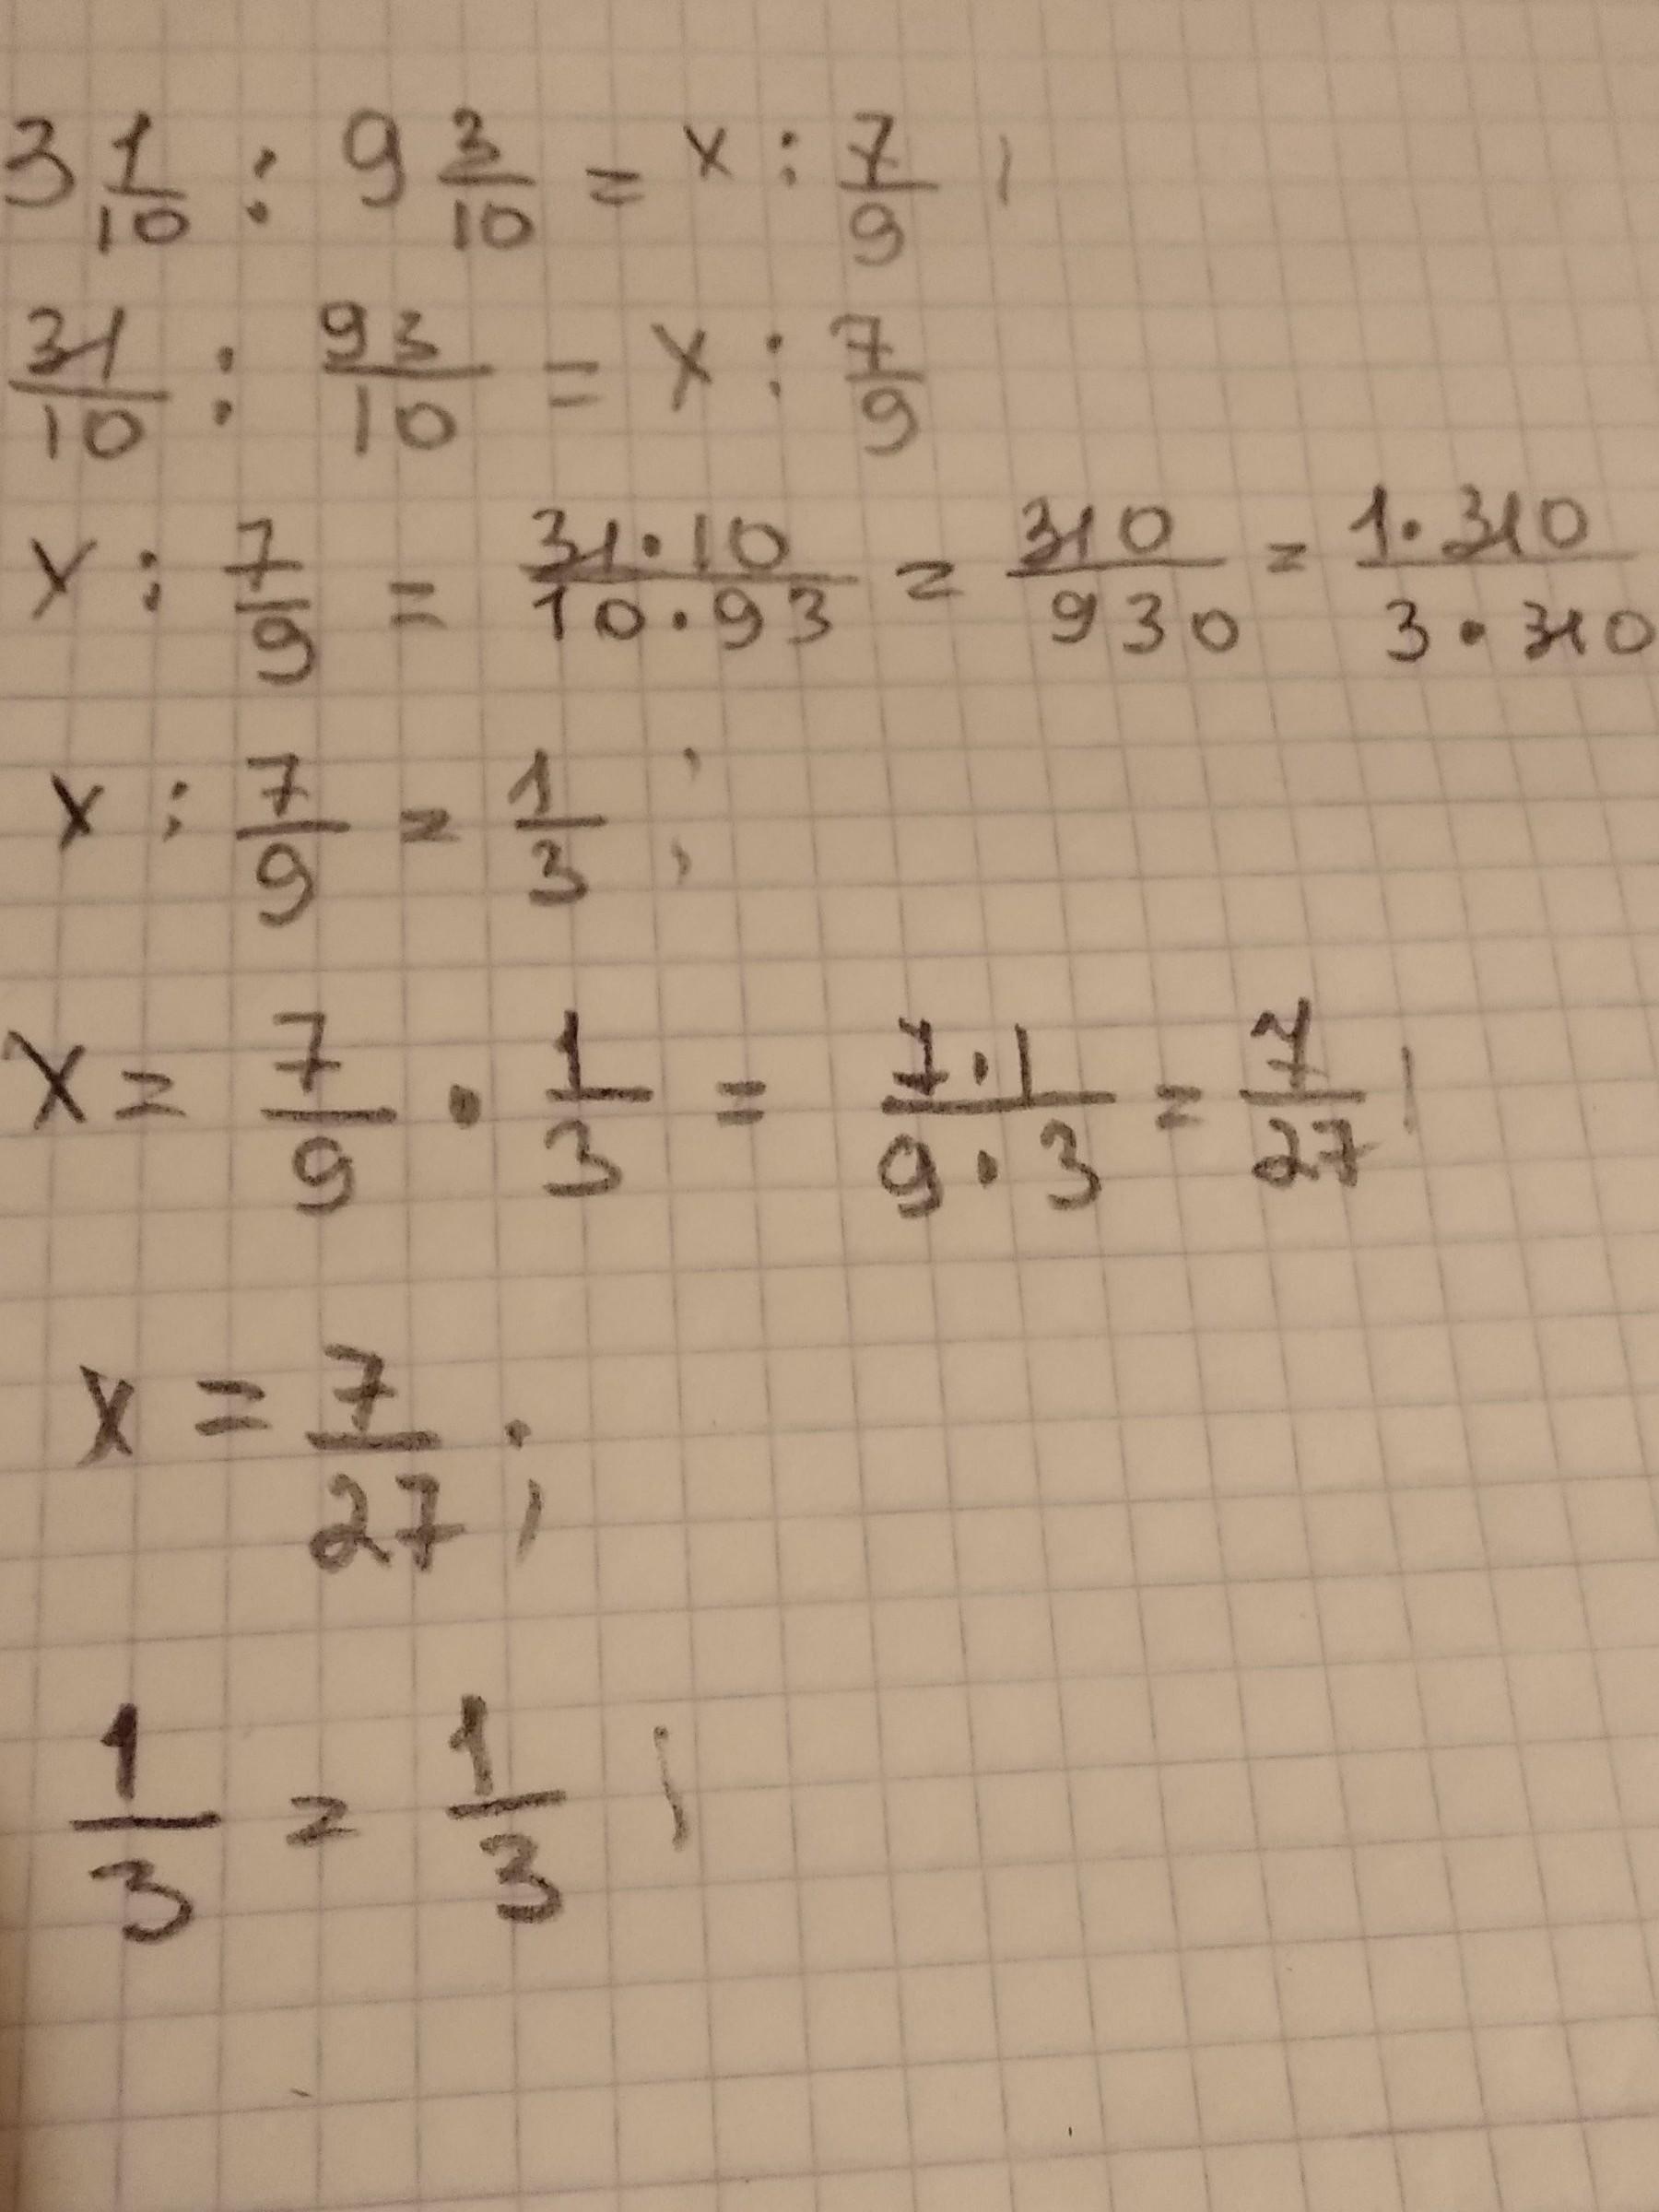 3 1/10 : 9 3/10 = x : 7/9 ;
31/10 : 93/10 = x : 7/9
x : 7/9 = 31·10/10·93 = 310/930 = 1·310/3·310
x : 7/9 = 1/3 ;
x = 7/9 · 1/3 = 7·1/9·3 = 7/27 ;
x = 7/27 ;
1/3 = 1/3 ;